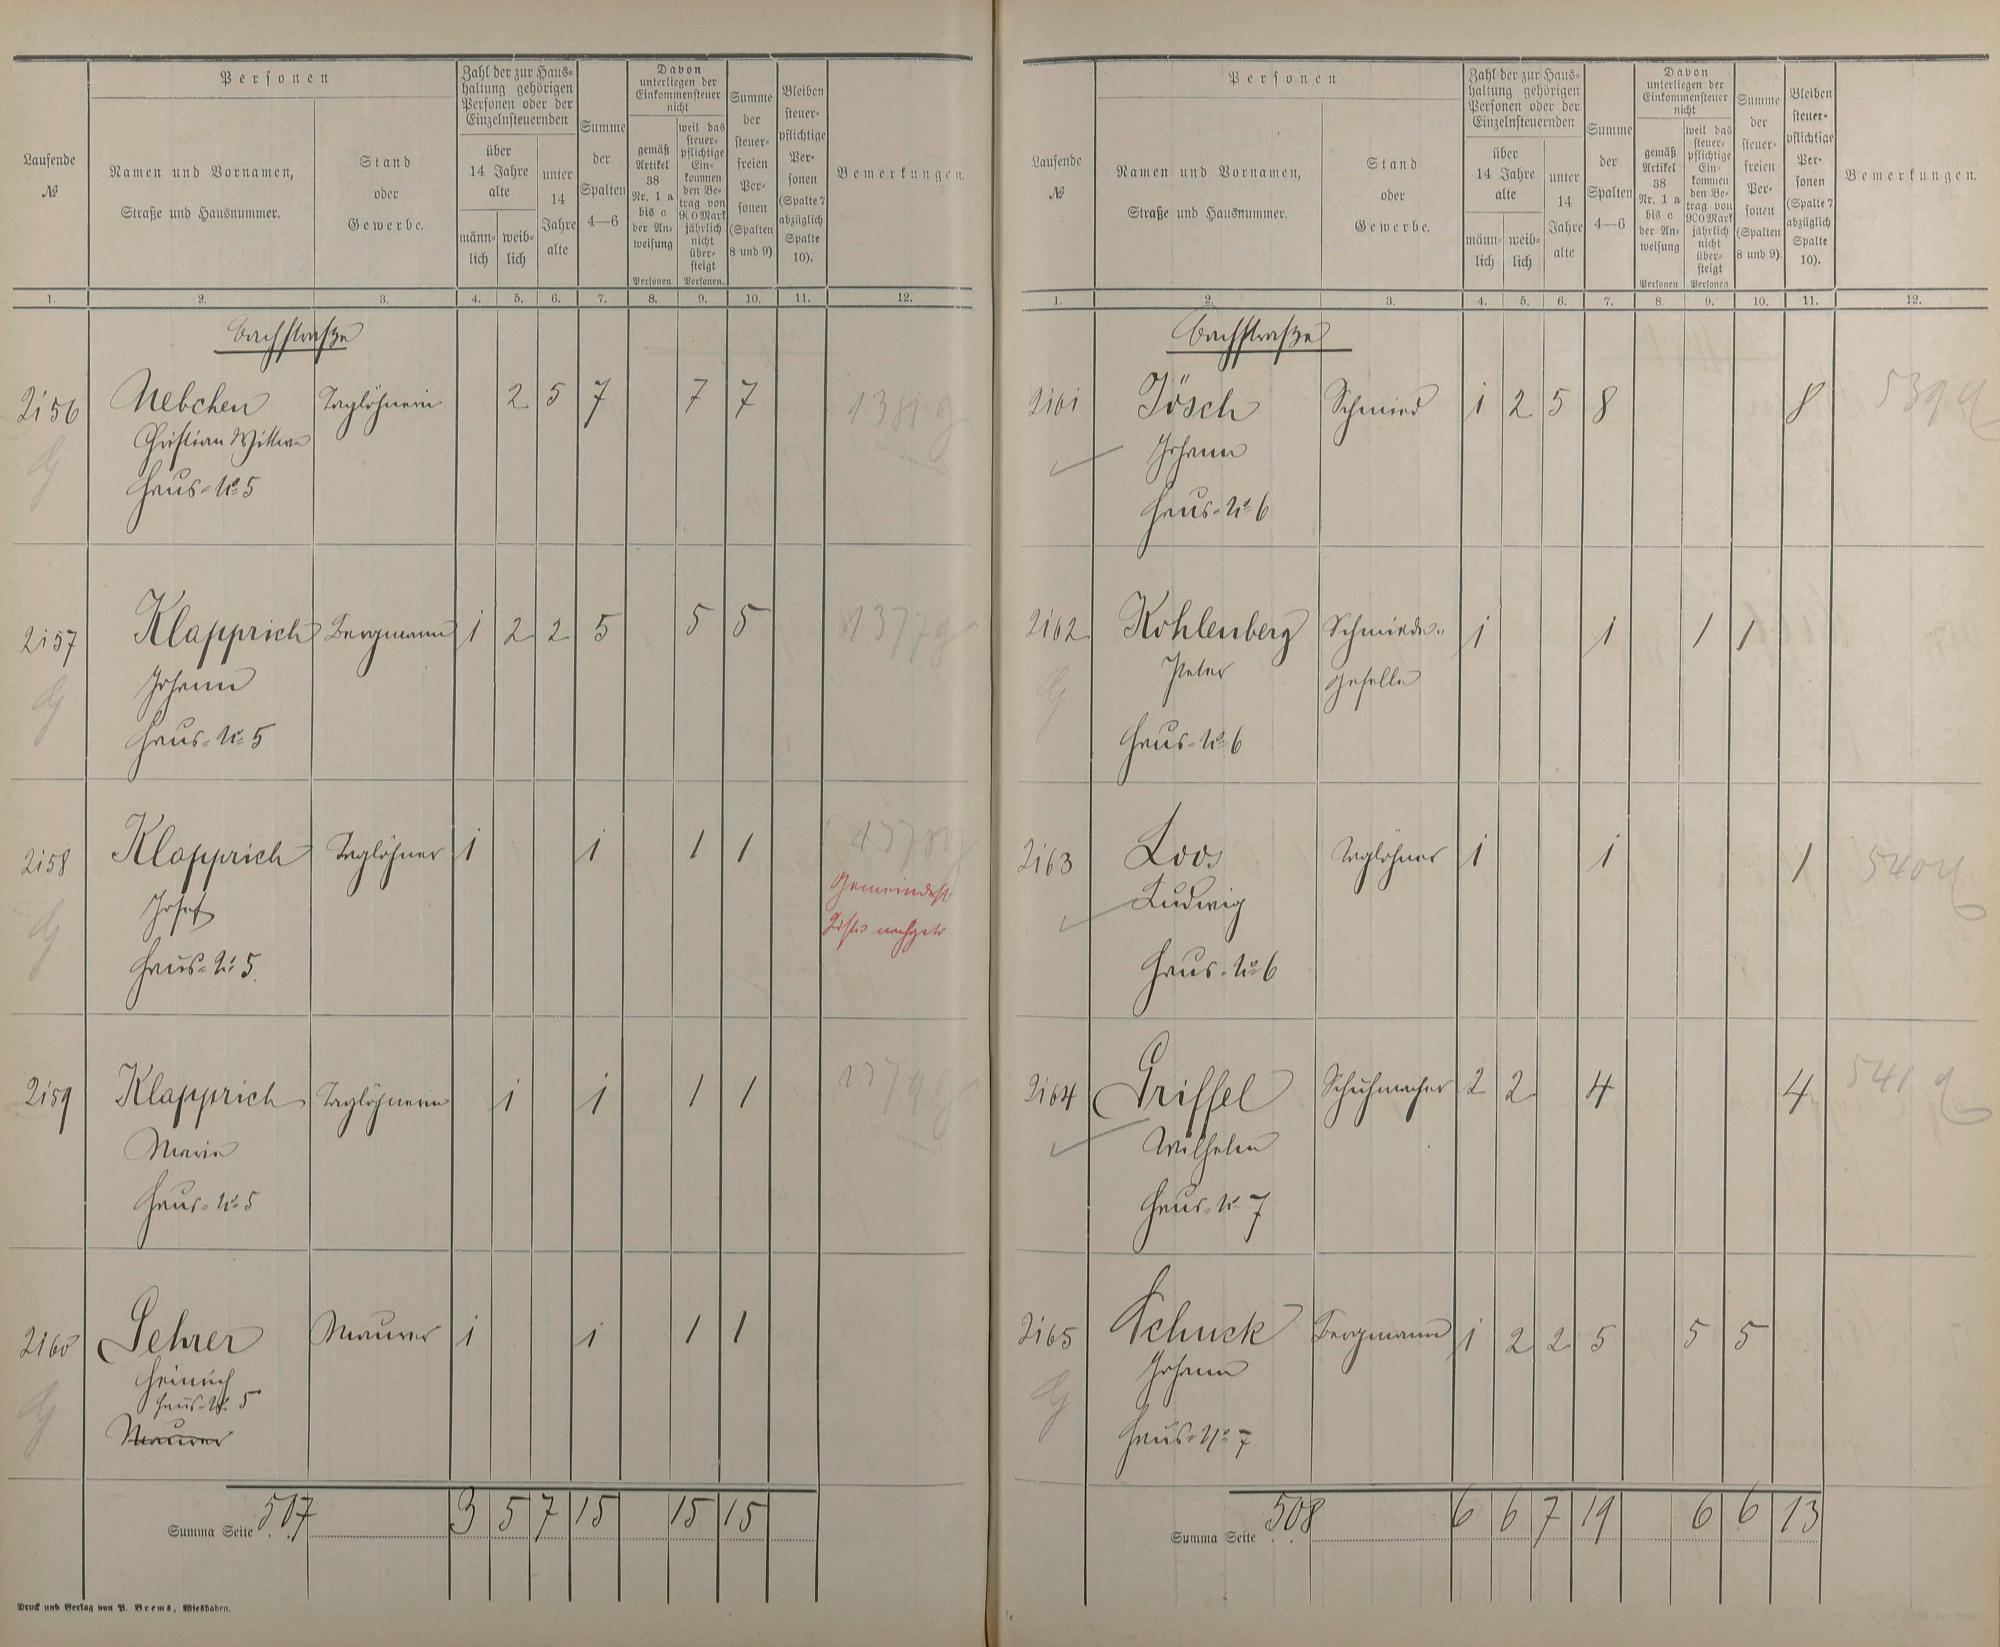 Laufende
№
Personen
Namen und Vornamen,
Straße und Hausnummer.
Stand
oder
Gewerbe.
Zahl der zur Haus-
haltung gehörigen
Personen oder der
Einzelnsteuernden
über
14 Jahre
alte
männ-
lich
weib-
lich
unter
14
Jahre
alte
Summe
der
Spalten
4—6
Davon
unterliegen der
Einkommensteuer
nicht
gemäß
Artikel
38
Nr. 1 a
bis c
der An-
weisung
Personen
weil das
steuer-
pflichtige
Ein-
kommen
den Be-
trag von
900 Mark
jährlich
nicht
über-
steigt
Personen.
Summe
der
steuer-
freien
Per-
sonen
(Spalten
8 und 9)
Bleiben
steuer-
pflichtige
Per-
sonen
(Spalte 7
abzüglich
Spalte
10).
Bemerkungen.
1. 2. 3. 4. 5. 6. 7. 8. 9. 10. 11. 12.
Bachstraße
2156 Nebchen Taglöhnerin 2 5 7 7 7 1381 g
Christian Wittwe
Haus-No 5
2157 Klapprich Bergmann 1 2 2 5 5 5 1377 g
Johann
Haus-No 5
2158 Klapprich Taglöhner 1 1 1 1 1378 g
Josef
Haus-No 5.
Gemeindest.
Liste nachgetr
2159 Klapprich Taglöhnerin 1 1 1 1 1379 g
Maria
Haus-No 5
2160 Lehrer Maurer 1 1 1 1
Heinrich
Haus-No 5
Maurer
Summa Seite 507 3 5 7 15 15 15
Druck und Verlag von P. Brems, Wiesbaden.
Laufende
№
Personen
Namen und Vornamen,
Straße und Hausnummer.
Stand
oder
Gewerbe.
Zahl der zur Haus-
haltung gehörigen
Personen oder der
Einzelnsteuernden
über
14 Jahre
alte
männ-
lich
weib-
lich
unter
14
Jahre
alte
Summe
der
Spalten
4—6
Davon
unterliegen der
Einkommensteuer
nicht
gemäß
Artikel
38
Nr. 1 a
bis c
der An-
weisung
Personen
weil das
steuer-
pflichtige
Ein-
kommen
den Be-
trag von
900 Mark
jährlich
nicht
über-
steigt
Personen
Summe
der
steuer-
freien
Per-
sonen
(Spalten
8 und 9)
Bleiben
steuer-
pflichtige
Per-
sonen
(Spalte 7
abzüglich
Spalte
10).
Bemerkungen.
1. 2. 3. 4. 5. 6. 7. 8. 9. 10. 11. 12.
Bachstraße
2161 Jösch Schmied 1 2 5 8 8 539
Johann
Haus-No 6
2162 Kohlenberg Schmiede- 1 1 1 1
Peter geselle
Haus-No 6
2163 Loos Taglöhner 1 1 1 540
Ludwig
Haus-No 6
2164 Griffel Schuhmacher 2 2 4 4 541
Wilhelm
Haus-No 7
2165 Schuck Bergmann 1 2 2 5 5 5
Johann
Haus-No 7
Summa Seite 508 6 6 7 19 6 6 13